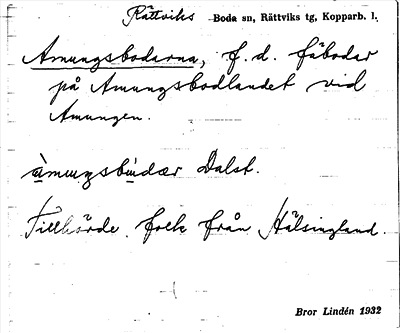 Rättviks Boda sn, Rättviks tg, Kopparb. l.
Amungsbodarna, f. d. fäbodar
på Amungsbodlandet vid
Amungen.
àmuŋsbùdær Dalst.
Tillhörde folk från Hälsingland.
Bror Lindén 1932